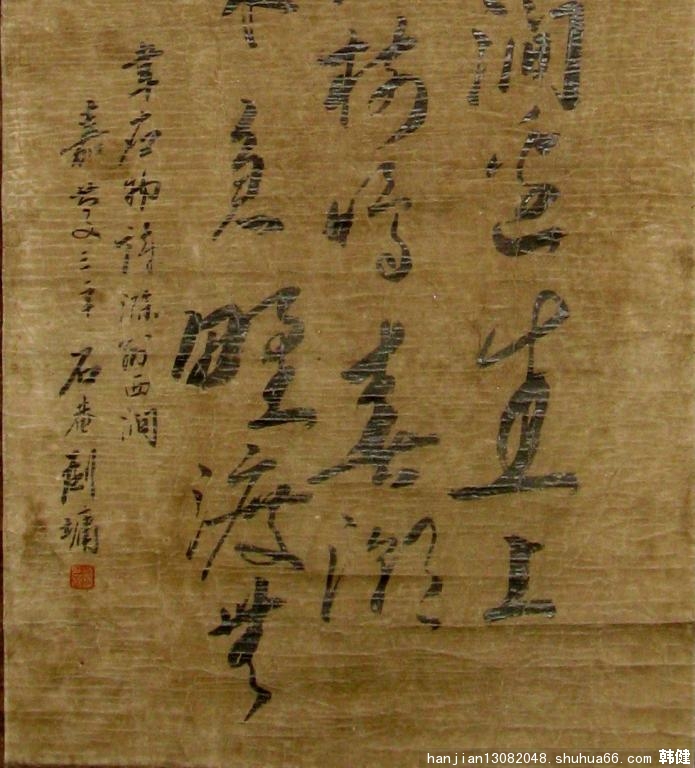 澗邊生上
樹鳴春潮
來急野渡無
韋應物詩滁州西澗
嘉慶三年 石菴劉墉
hanjian13082048.shuhua66.com 韩健